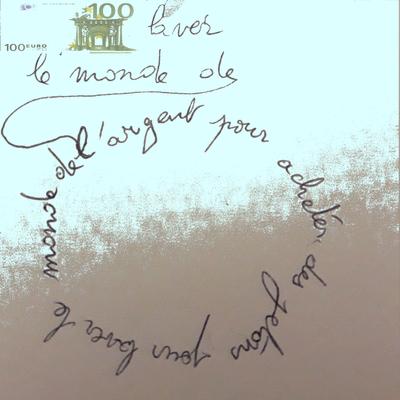 100
100 EURO
laver
le monde de
l'argent pour acheter des jetons pour laver le monde de